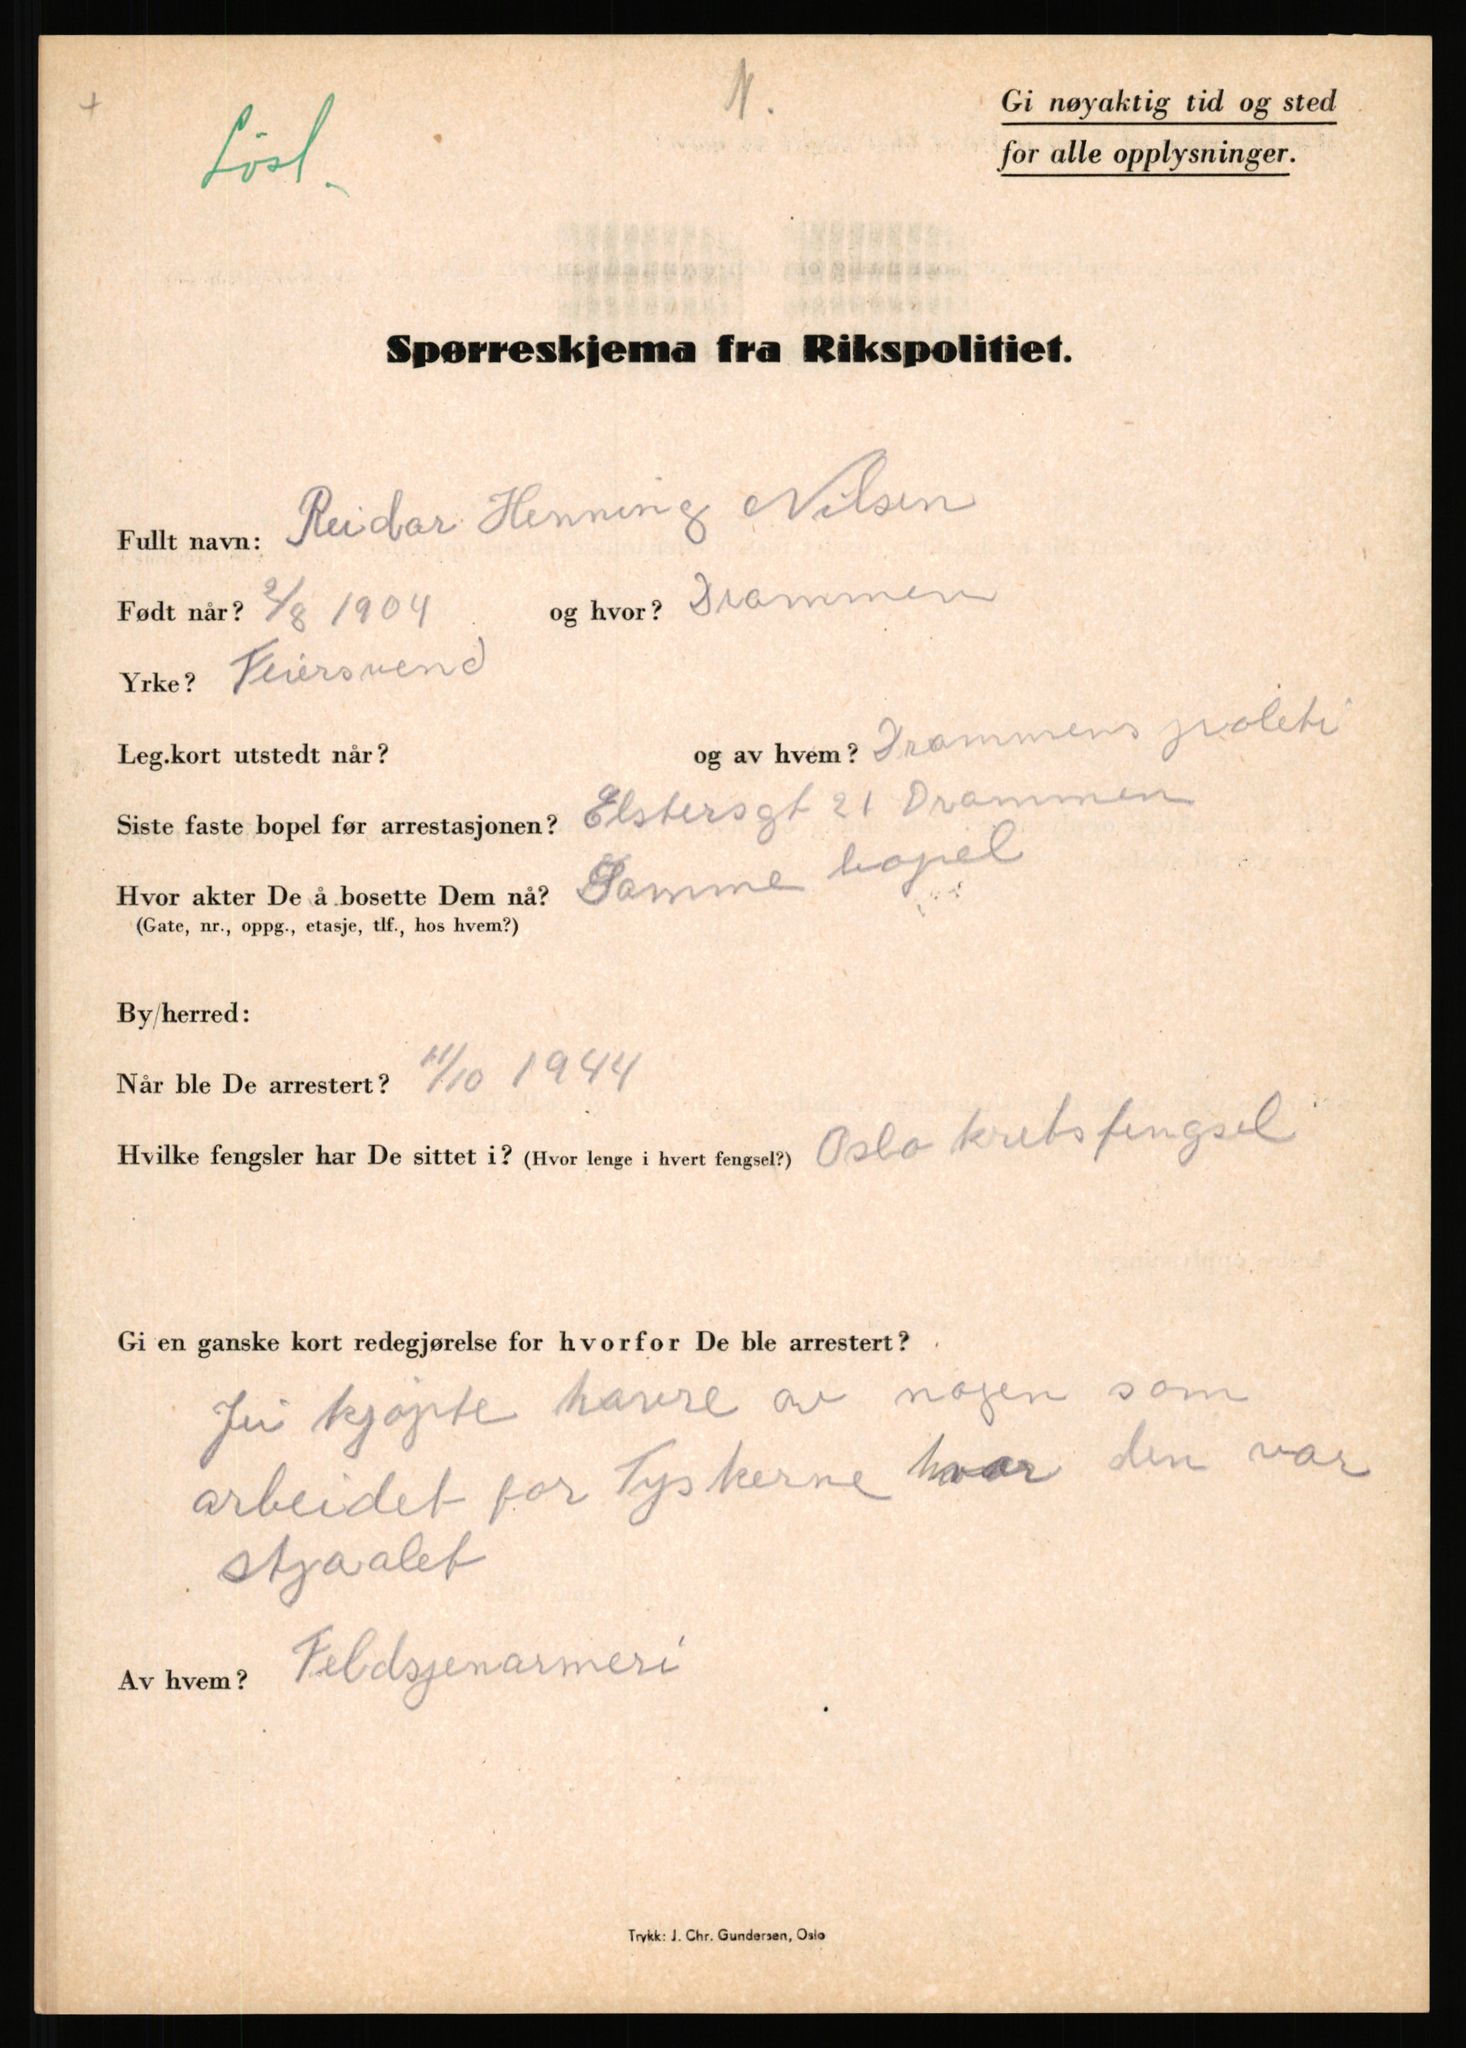 Løsl.
N.
Gi nøyaktig tid og sted
for alle opplysninger.
Spørreskjema fra Rikspolitiet.
Fullt navn: Reidar Henning Nilsen
Født når? 2/8 1904 og hvor? Drammen
Yrke? Feiersvend
Leg.kort utstedt når? og av hvem? Drammens politi
Siste faste bopel før arrestasjonen? Elstersgt 21 Drammen
Hvor akter De å bosette Dem nå? Samme bopel
(Gate, nr., oppg., etasje, tlf., hos hvem?)
By/herred:
Når ble De arrestert? 11/10 1944
Hvilke fengsler har De sittet i? (Hvor lenge i hvert fengsel?) Oslo kretsfengsel
Gi en ganske kort redegjørelse for hvorfor De ble arrestert?
kjøpte havre av nogen som
arbeidet for Tyskerne hvor den var
stjaalet
Av hvem? Feldsjenarmeri
Trykk: J. Chr. Gundersen, Oslo